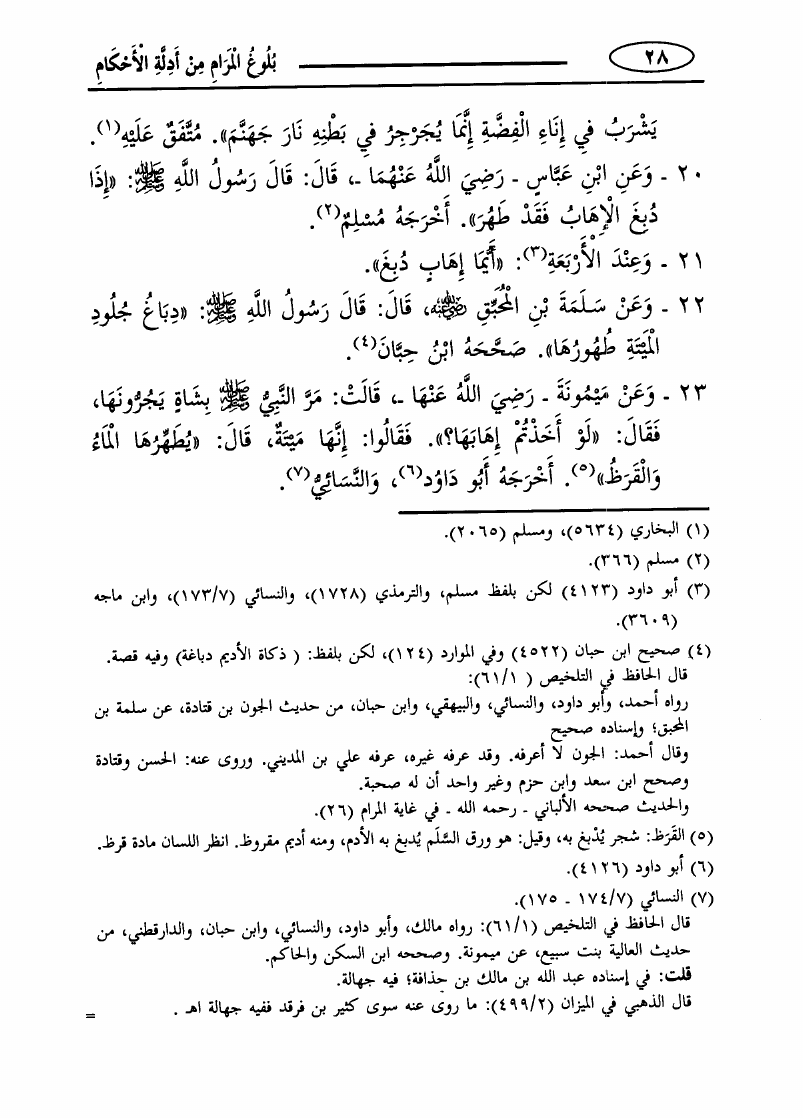 ٢٨ بُلُوغُ الْمَرَامِ مِنْ أَدِلَّةِ الْأَحْكَامِ
يَشْرَبُ فِي إِنَاءِ الْفِضَّةِ إِنَّمَا يُجَرْجِرُ فِي بَطْنِهِ نَارَ جَهَنَّمَ». مُتَّفَقٌ عَلَيْهِ(١).
٢٠ ـ وَعَنِ ابْنِ عَبَّاسٍ ـ رَضِيَ اللَّهُ عَنْهُمَا ـ، قَالَ: قَالَ رَسُولُ اللَّهِ ﷺ: «إِذَا
دُبِغَ الْإِهَابُ فَقَدْ طَهُرَ». أَخْرَجَهُ مُسْلِمٌ(٢).
٢١ ـ وَعِنْدَ الْأَرْبَعَةِ(٣): «أَيُّمَا إِهَابٍ دُبِغَ».
٢٢ ـ وَعَنْ سَلَمَةَ بْنِ الْمُحَبِّقِ رضي الله عنه، قَالَ: قَالَ رَسُولُ اللَّهِ ﷺ: «دِبَاغُ جُلُودِ
الْمَيْتَةِ طُهُورُهَا». صَحَّحَهُ ابْنُ حِبَّانَ(٤).
٢٣ ـ وَعَنْ مَيْمُونَةَ ـ رَضِيَ اللَّهُ عَنْهَا ـ، قَالَتْ: مَرَّ النَّبِيُّ ﷺ بِشَاةٍ يَجُرُّونَهَا،
فَقَالَ: «لَوْ أَخَذْتُمْ إِهَابَهَا؟». فَقَالُوا: إِنَّهَا مَيْتَةٌ، قَالَ: «يُطَهِّرُهَا الْمَاءُ
وَالْقَرَظُ»(٥). أَخْرَجَهُ أَبُو دَاوُد(٦)، وَالنَّسَائِيُّ(٧).
(١) البخاري (٥٦٣٤)، ومسلم (٢٠٦٥).
(٢) مسلم (٣٦٦).
(٣) أبو داود (٤١٢٣) لكن بلفظ مسلم، والترمذي (١٧٢٨)، والنسائي (١٧٣/٧)، وابن ماجه
(٣٦٠٩).
(٤) صحيح ابن حبان (٤٥٢٢) وفي الموارد (١٢٤)، لكن بلفظ: ( ذكاة الأديم دباغة) وفيه قصة.
قال الحافظ في التلخيص ( ٦١/١):
رواه أحمد، وأبو داود، والنسائي، والبيهقي، وابن حبان، من حديث الجون بن قتادة، عن سلمة بن
المحبق؛ وإسناده صحيح
وقال أحمد: الجون لا أعرفه. وقد عرفه غيره، عرفه علي بن المديني. وروى عنه: الحسن وقتادة
وصحح ابن سعد وابن حزم وغير واحد أن له صحبة.
والحديث صححه الألباني ـ رحمه الله ـ في غاية المرام (٢٦).
(٥) القَرَظ: شجر يُدْبغ به، وقيل: هو ورق السَّلَم يُدبغ به الأدم، ومنه أديم مقروظ. انظر اللسان مادة قرظ.
(٦) أبو داود (٤١٢٦).
(٧) النسائي (١٧٤/٧ ـ ١٧٥).
قال الحافظ في التلخيص (٦١/١): رواه مالك، وأبو داود، والنسائي، وابن حبان، والدارقطني، من
حديث العالية بنت سبيع، عن ميمونة. وصححه ابن السكن والحاكم.
قلت: في إسناده عبد الله بن مالك بن حذافة؛ فيه جهالة.
قال الذهبي في الميزان (٤٩٩/٢): ما روى عنه سوى كثير بن فرقد ففيه جهالة اهـ .
=